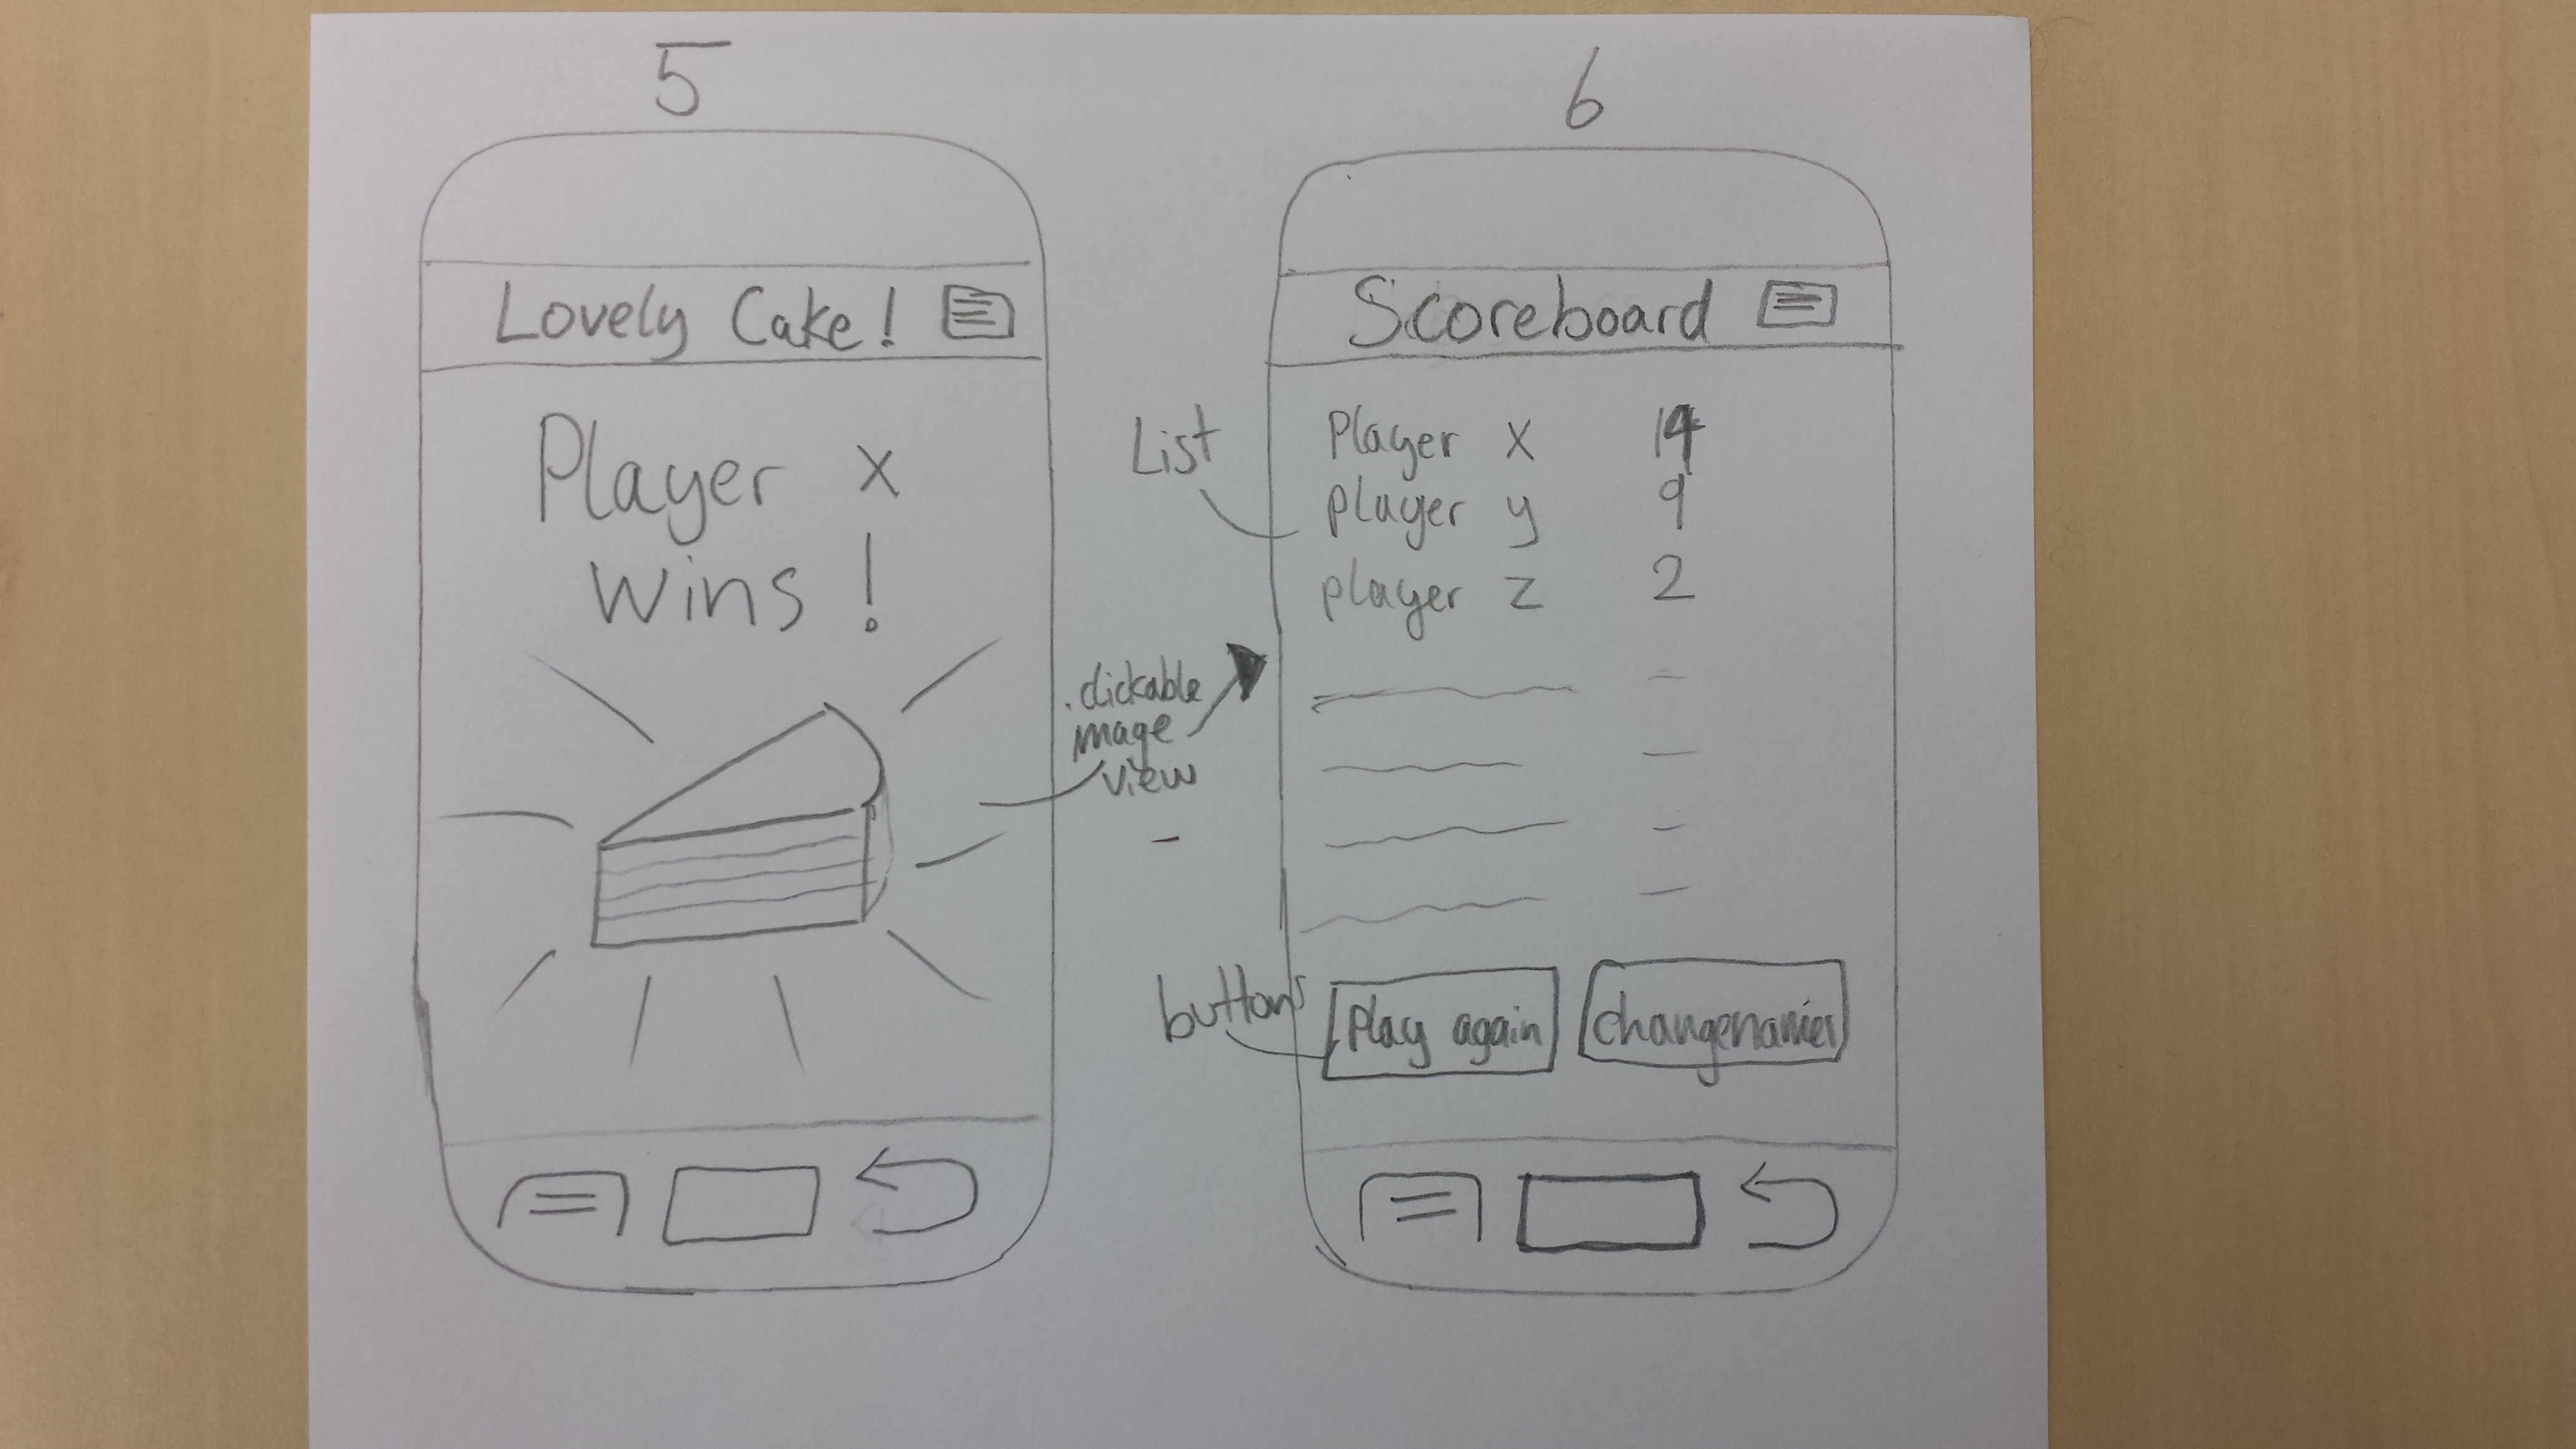 5
Lovely Cake!
Player x
wins!
.clickable
image
view
6
Scoreboard
List
Player x 14
player y 9
player z 2
buttons
Play again
changenames